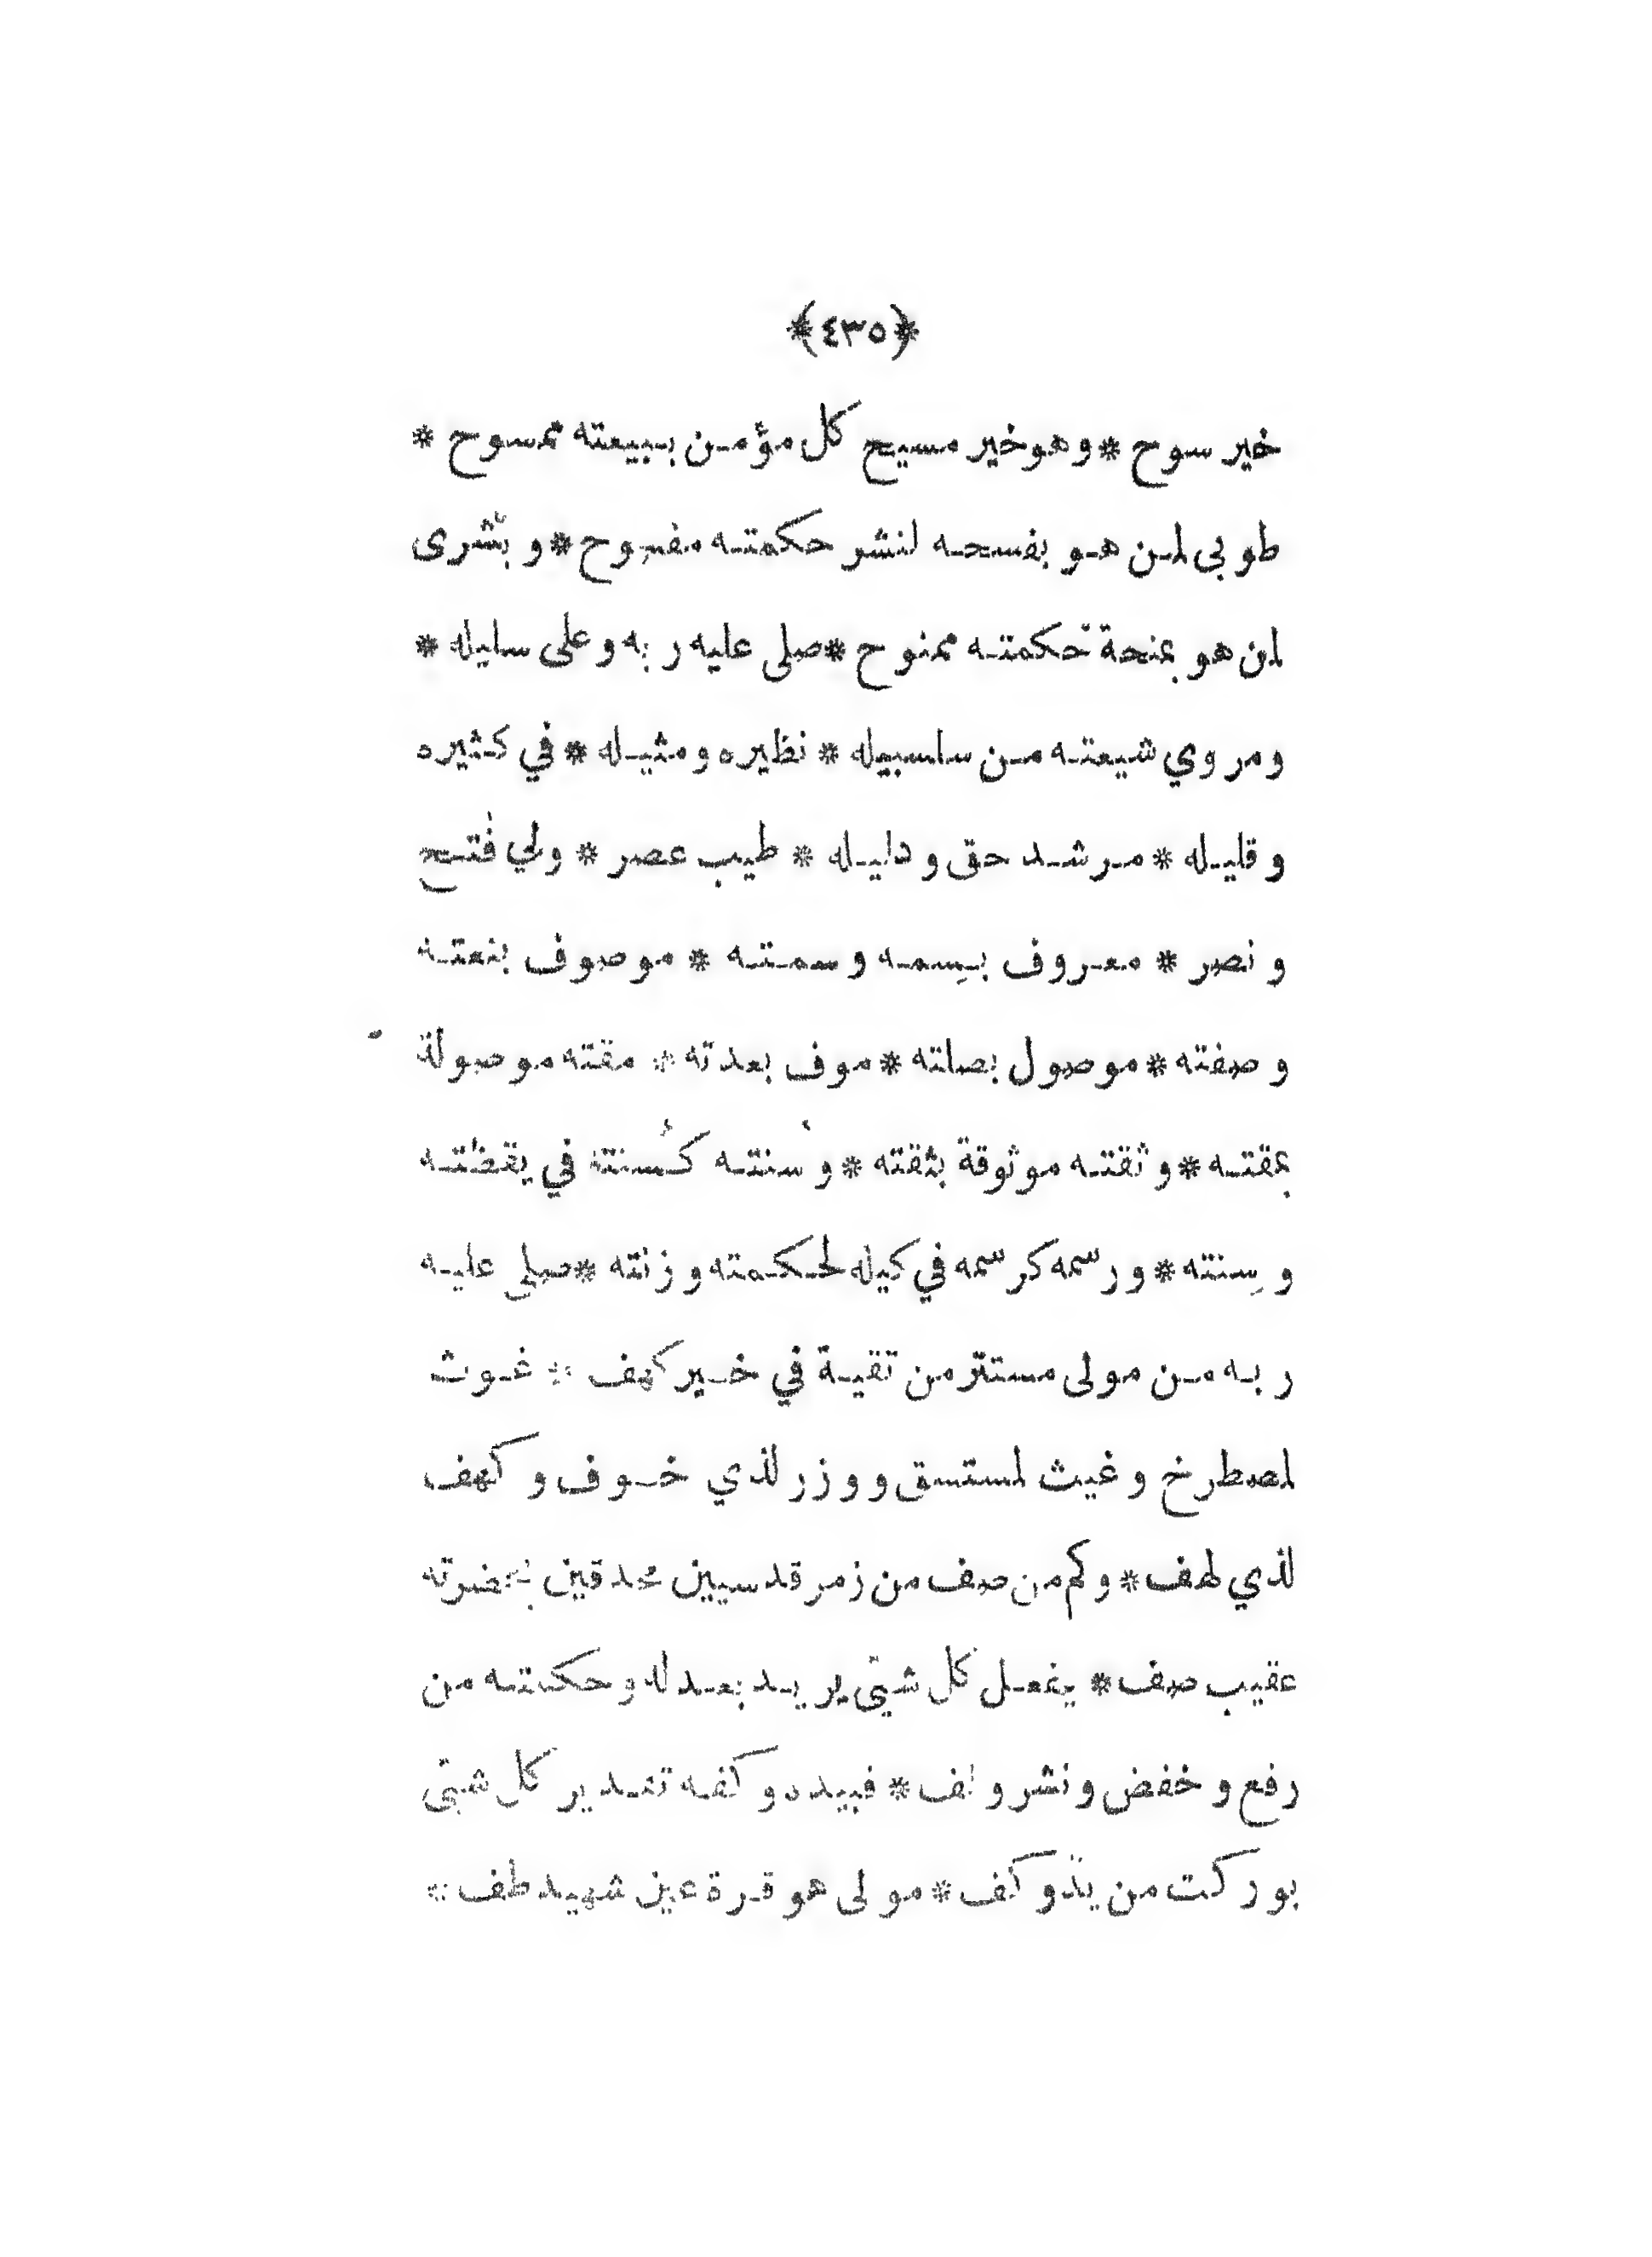 ﴿٤٣٥﴾
خير سوح * وهو خير مسيح كل مؤمن ببيعته ممسوح *
طوبى لمن هو بفسحه لنشر حكمته مفسوح * و بشرى
لمن هو بمنحة حكمته ممنوح * صلى عليه ربه وعلى سليله *
ومروي شيعته من سلسبيله * نظيره ومثيله * في كثيره
و قليله * مرشد حق و دليله * طيب عصر * ولي فتح
و نصر * معروف بسمه و سمته * موصوف بنعته
و صفته * موصول بصلته * موف بعدته * مقته موصولة
بمقته * و ثقته موثوقة بثقته * و سنته كسنته في يقظته
و سِنته * و رسمه كرسمه في كيله لحكمته و زنته * صلى عليه
ربه من مولى مستتر من تقية في خير كهف * غوث
لمصطرخ و غيث لمستسق و وزر لذي خوف و كهف
لذي لهف * وكم من صف من زمر قدسيين محدقين بحضرته
عقيب صف * يفعل كل شيئ يريد بعدله و حكمته من
رفع و خفض و نشر و لف * فبيده و كفه تقدير كل شيئ
بوركت من يد و كف * مولى هو قرة عين شهيد طف *